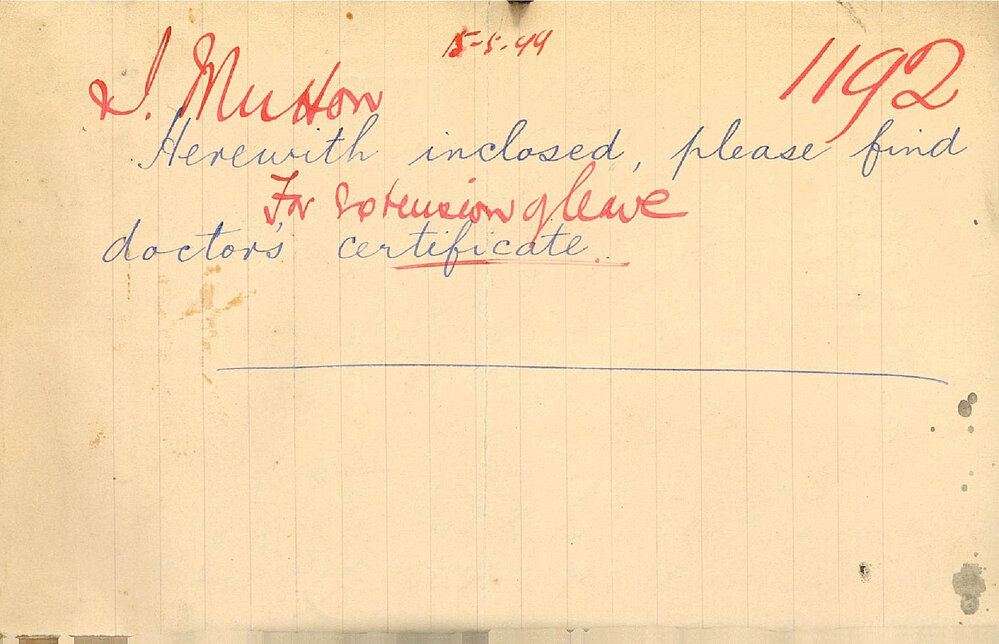 15-5-44
I. Mutton 1192
Herewith inclosed, please find
For Extension of leave
doctor's certificate.